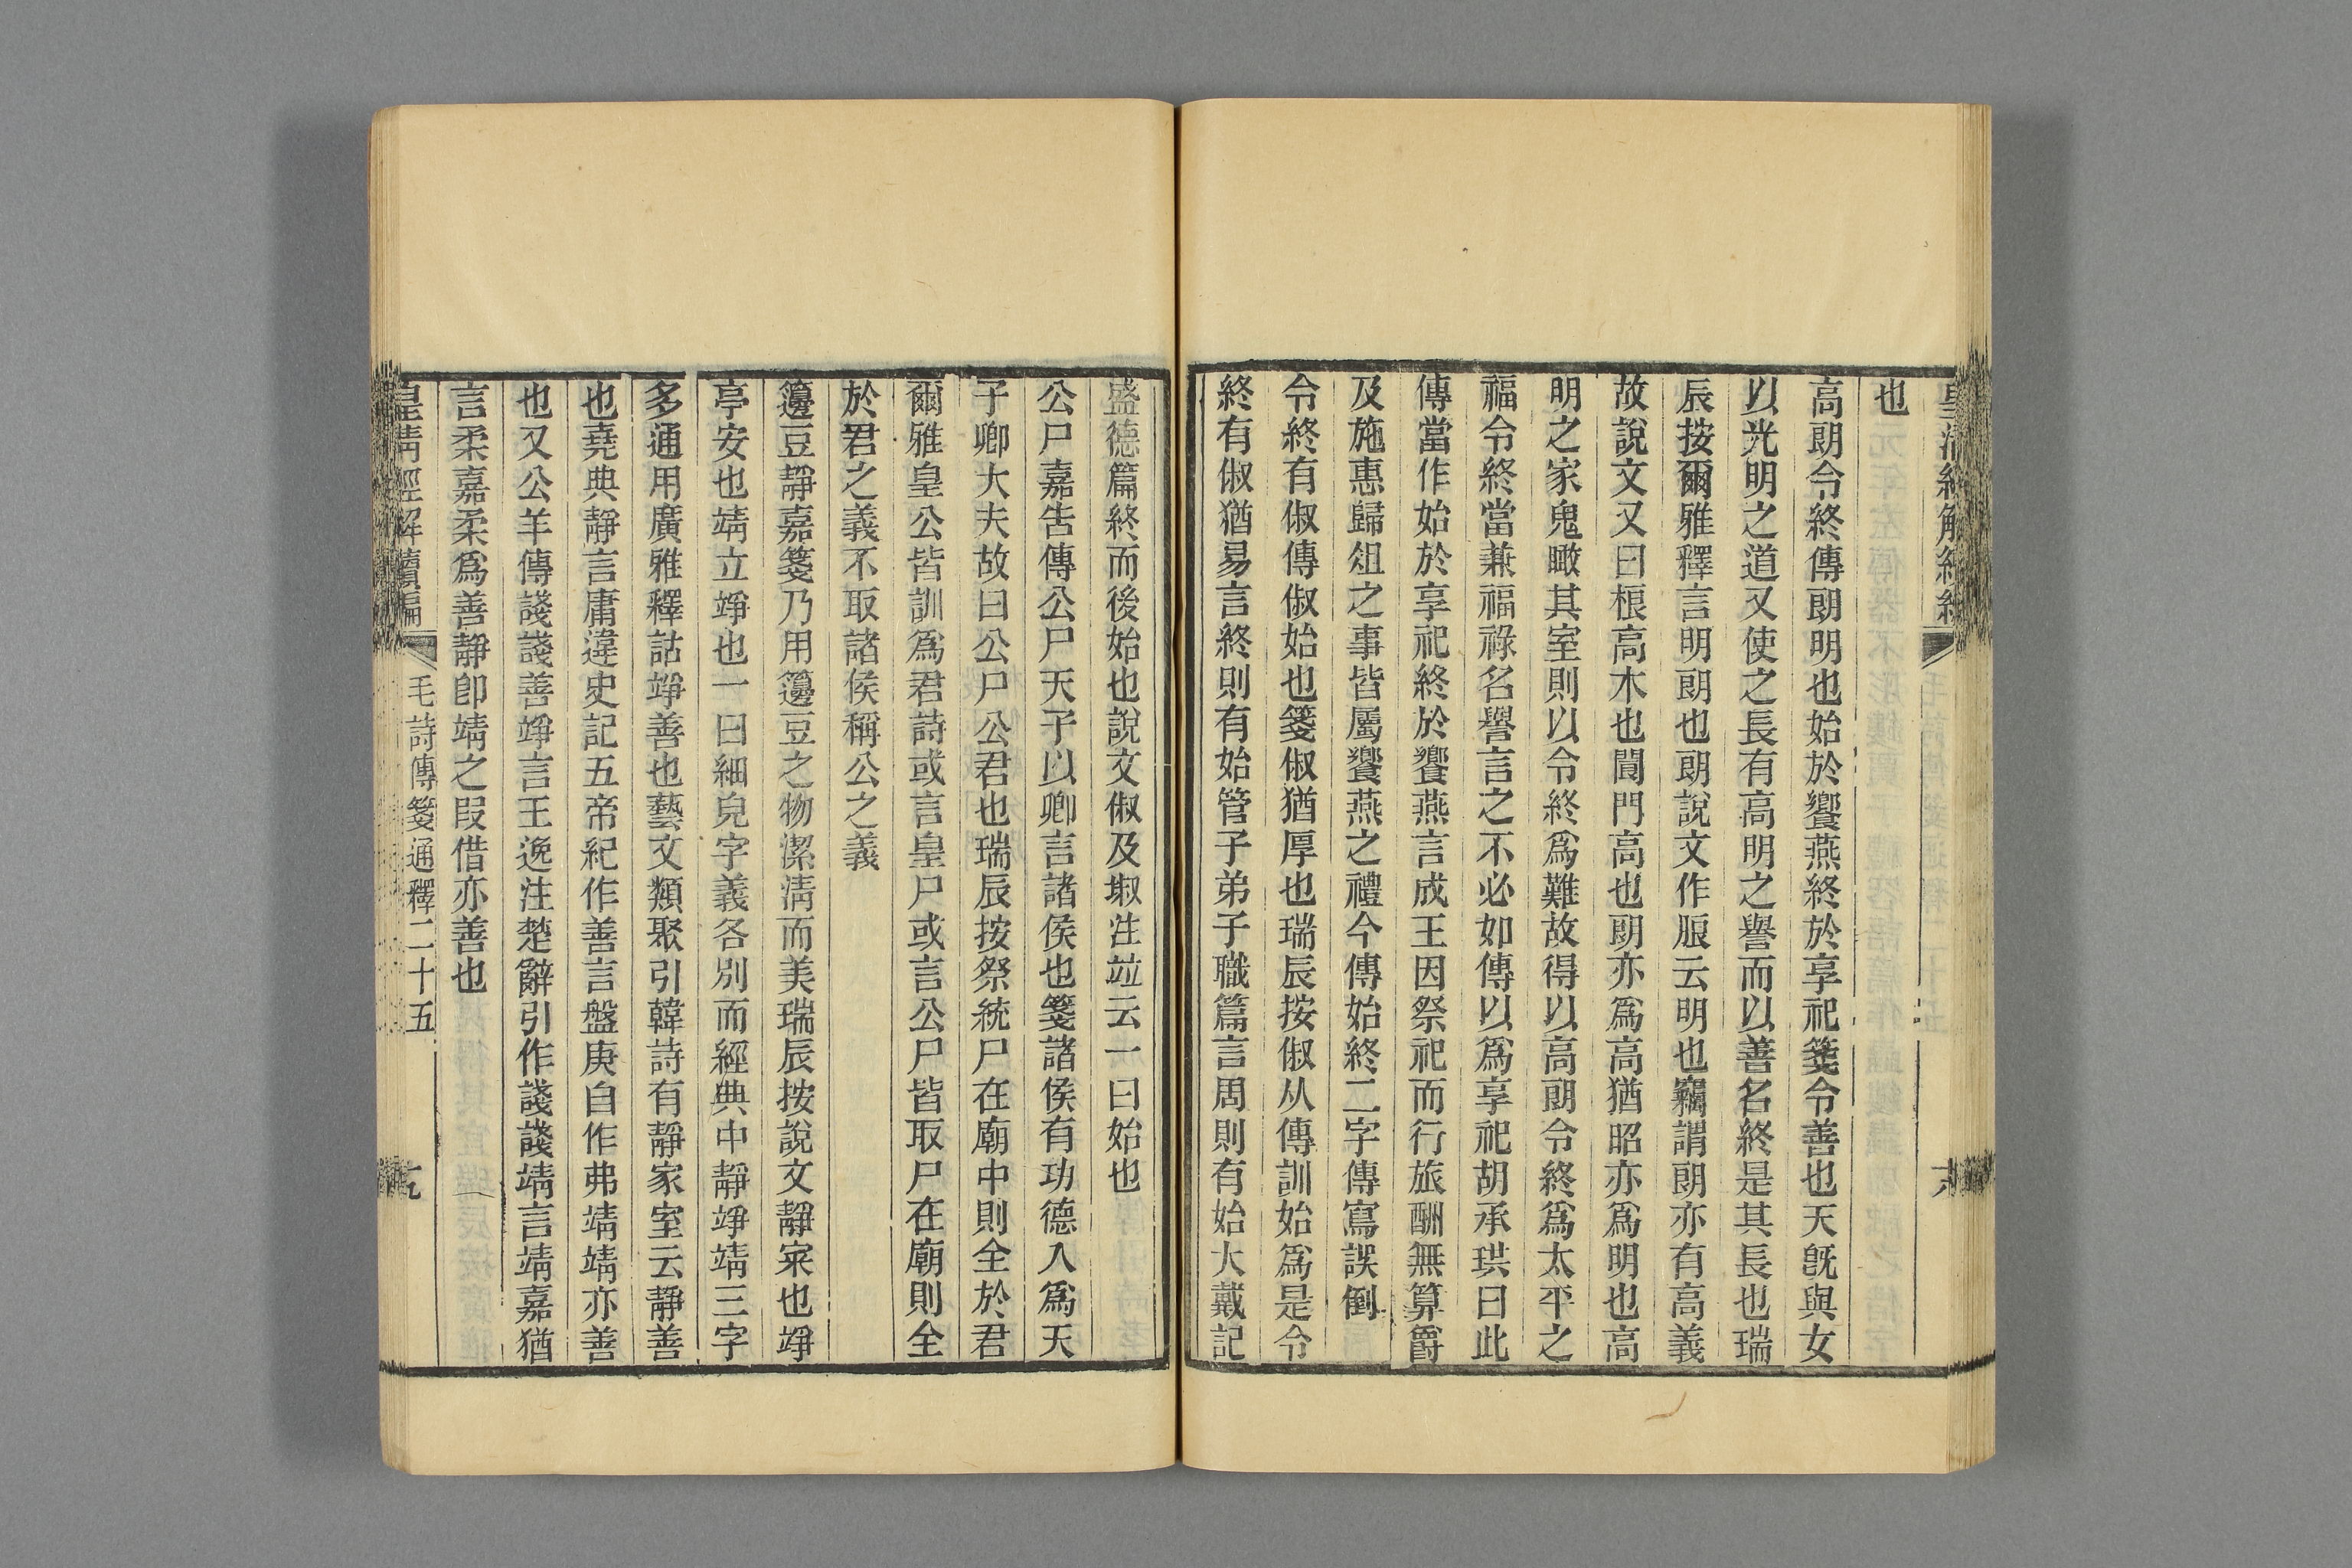 也
高朗令終傳朗明也始於饗燕終於享祀箋令善也天旣與女
以光明之道又使之長有高明之譽而以善名終是其長也瑞
辰按爾雅釋言明朗也朗說文作朖云明也竊謂朗亦有高義
故說文又曰桹高木也閬門高也朗亦爲高猶昭亦爲明也高
明之家鬼瞰其室則以令終爲難故得以高朗令終爲太平之
福令終當兼福祿名譽言之不必如傳以爲享祀胡承珙曰此
傳當作始於享祀終於饗燕言成王因祭祀而行旅酬無算爵
及施惠歸俎之事皆屬饗燕之禮今傳始終二字傳寫誤倒
令終有俶傳俶始也箋俶猶厚也瑞辰按俶从傳訓始爲是令
終有俶猶易言終則有始管子弟子職篇言周則有始大戴記
盛德篇終而後始也說文俶及埱注竝云一曰始也
公尸嘉告傳公尸天子以卿言諸侯也箋諸侯有功德入爲天
子卿大夫故曰公尸公君也瑞辰按祭統尸在廟中則全於君
爾雅皇公皆訓爲君詩或言皇尸或言公尸皆取尸在廟則全
於君之義不取諸侯稱公之義
籩豆靜嘉箋乃用籩豆之物潔淸而美瑞辰按說文靜宷也竫
亭安也靖立竫也一曰細皃字義各別而經典中靜竫靖三字
多通用廣雅釋詁竫善也藝文類聚引韓詩有靜家室云靜善
也堯典靜言庸違史記五帝紀作善言盤庚自作弗靖靖亦善
也又公羊傳諓諓善竫言王逸注楚辭引作諓諓靖言靖嘉猶
言柔嘉柔爲善靜卽靖之叚借亦善也
皇淸經解續編 毛詩傳箋通釋二十五